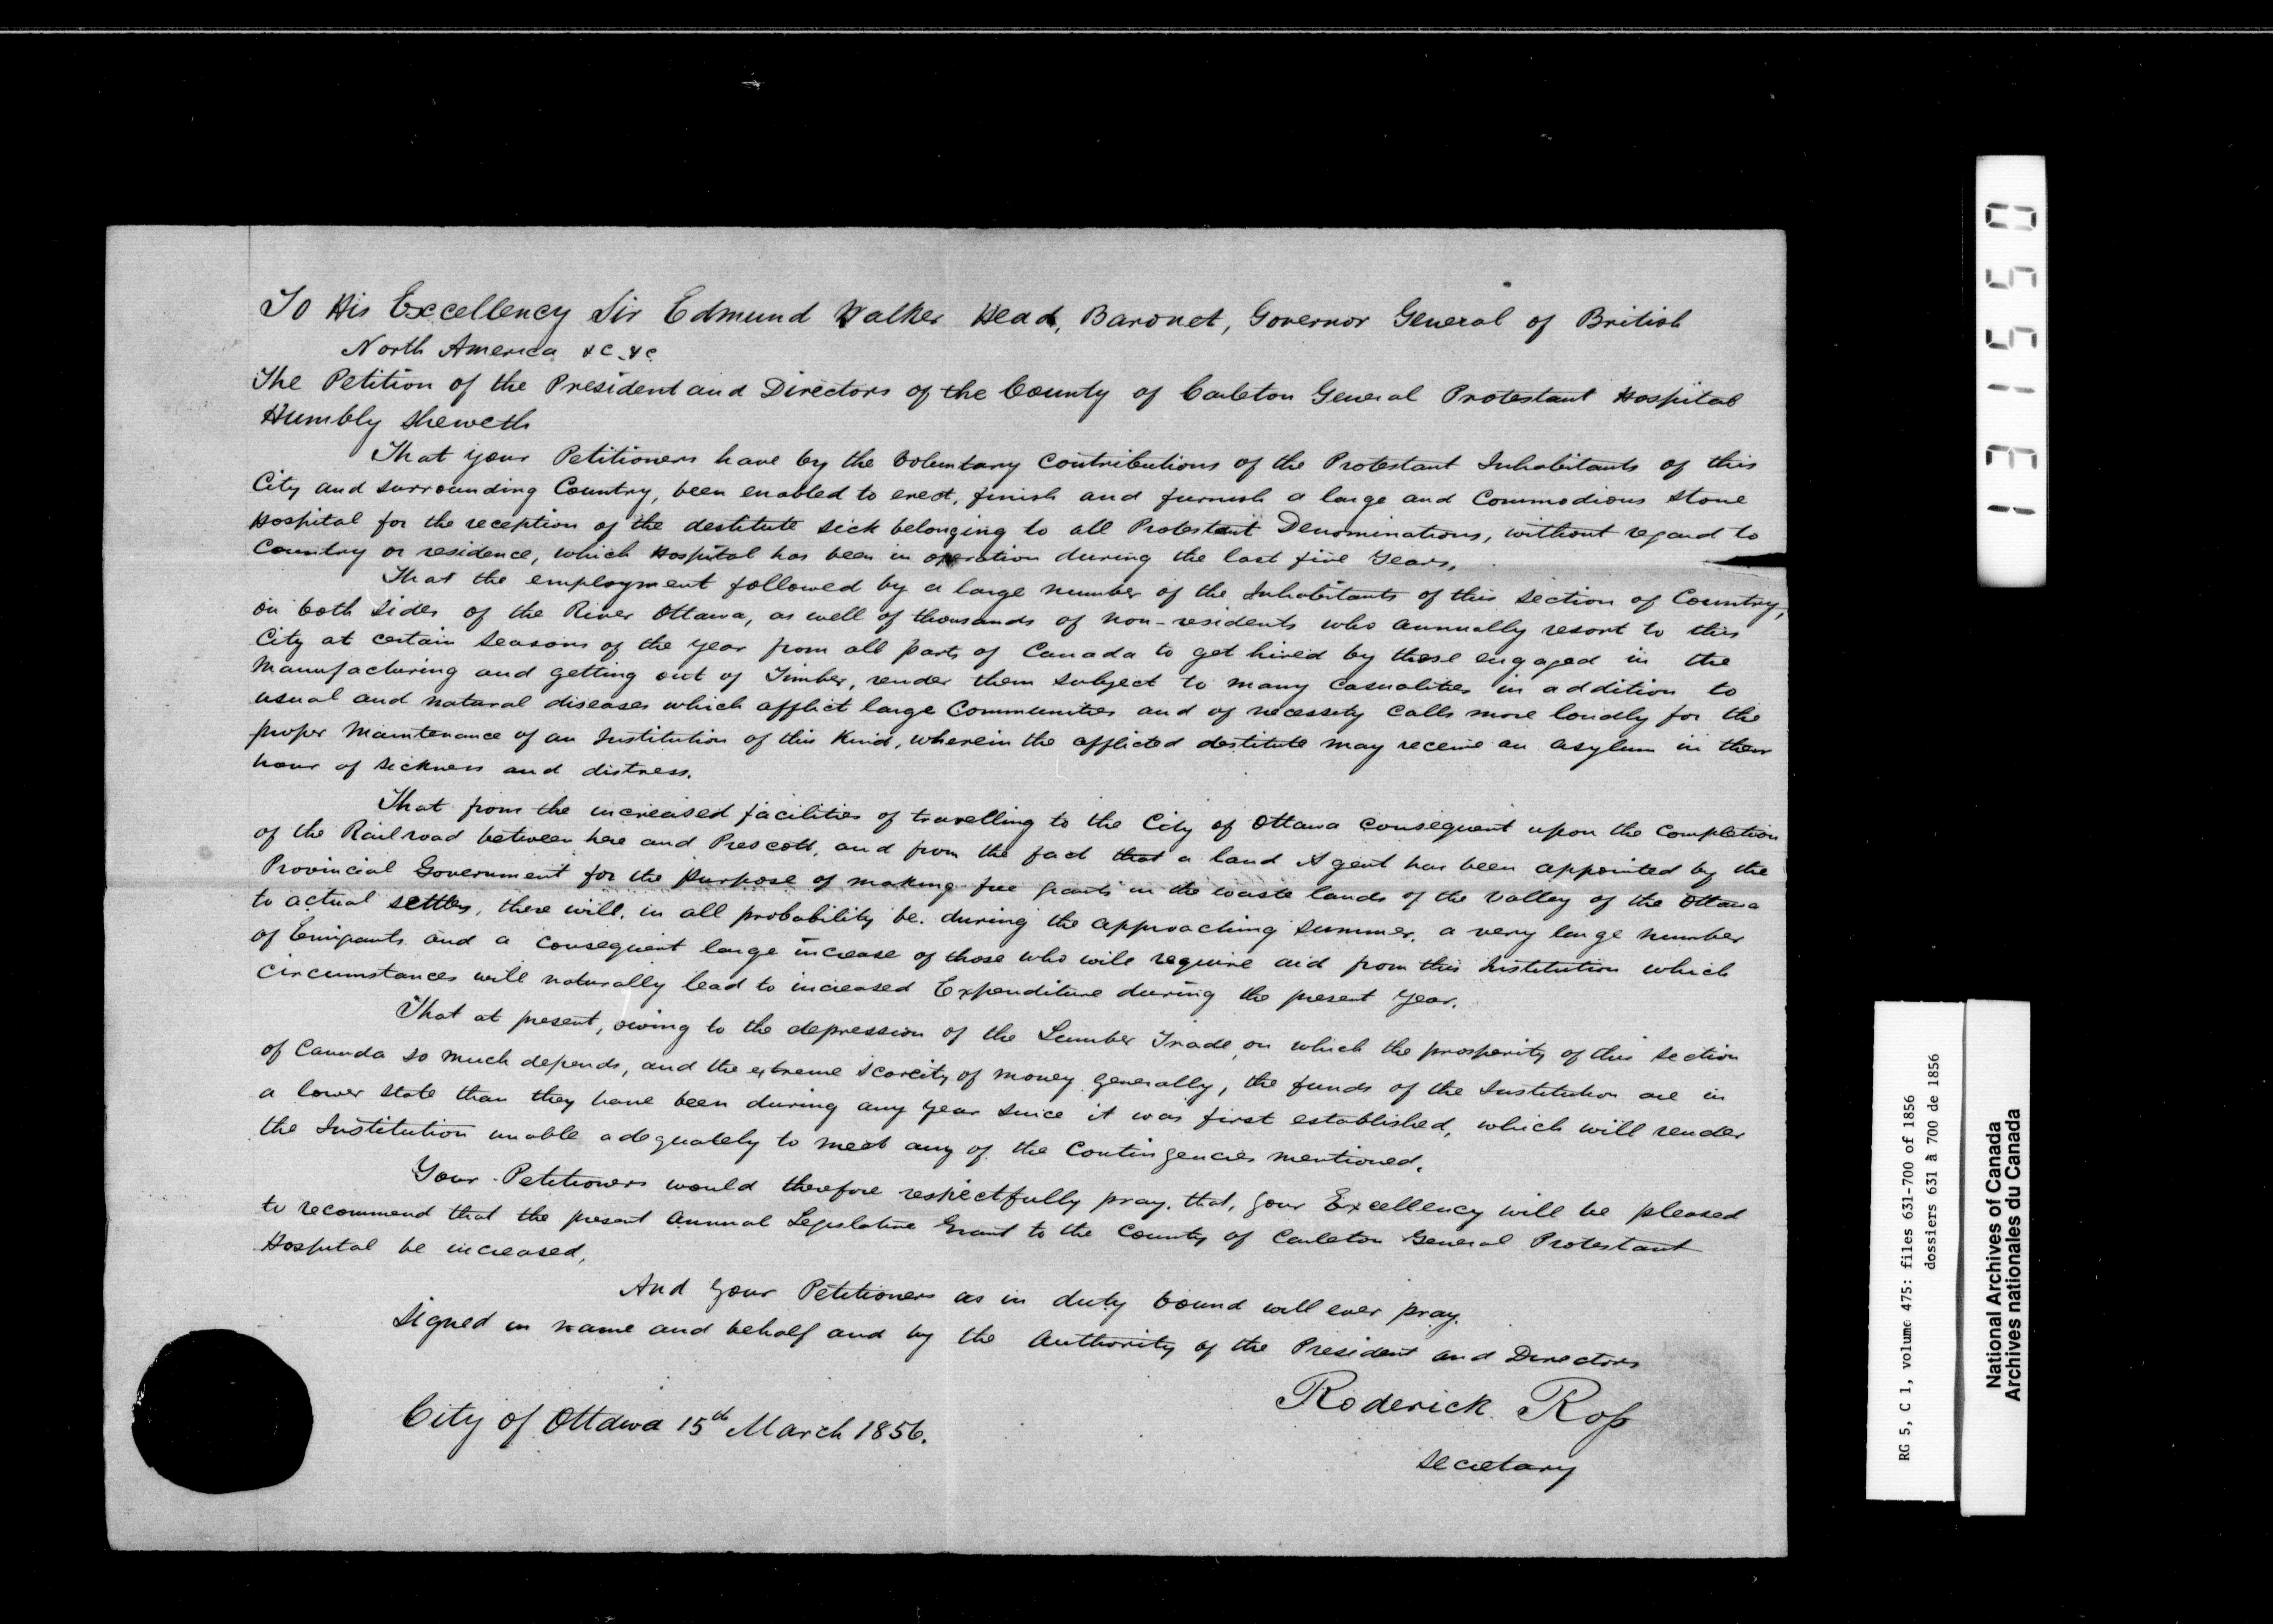 To His Excellency Sir Edmund Walker Head, Baronet, Governor General of British
North America &c &c
The Petition of the President and Directors of the County of Carleton General Protestant Hospital
Humbly Sheweth
That your Petitioners have by the Voluntary Contributions of the Protestant Inhabitants of this
City and surrounding Country, been enabled to erect, finish and furnish a large and Commodious stone
Hospital for the reception of the destitute sick belonging to all Protestant Denominations, without regard to
Country or residence, which Hospital has been in operation during the last five Years.
That the employment followed by a large number of the Inhabitants of this Section of Country,
on both Sides of the River Ottawa, as well of thousands of non-residents who annually resort to this
City at certain Seasons of the Year from all parts of Canada to get hired by those engaged in the
Manufacturing and getting out of Timber, render them subject to many Casualities in addition to
usual and natural diseases which afflict large Communities and of necessity Calls more loudly for the
proper Maintenance of an Institution of this Kind, wherein the afflicted destitute may receive an asylum in their
hour of Sickness and distress.
That from the increased facilities of travelling to the City of Ottawa Consequent upon the Completion
of the Railroad between here and Prescott, and from the fact that a land Agent has been appointed by the
Provincial Government for the purpose of making free grants in the waste lands of the Valley of the Ottawa
to actual settlers, there will, in all probability be, during the approaching Summer, a very large number
of Emigrants and a Consequent large increase of those who will require aid from this Institution which
Circumstances will naturally lead to increased Expenditure during the present Year.
That at present, owing to the depression of the Lumber Trade, on which the prosperity of this section
of Canada so much depends, and the extreme scarcity of money generally, the funds of the Institution are in
a lower state than they have been during any year since it was first established, which will render
the Institution unable adequately to meet any of the Contingencies mentioned.
Your Petitioners would therefore respectfully pray, that, your Excellency will be pleased
to recommend that the present Annual Legislative Grant to the County of Carleton General Protestant
Hospital be increased,
And Your Petitioners as in duty bound will ever pray.
Signed in name and behalf and by the Authority of the President and Directors
Roderick Ross
Secretary
City of Ottawa 15th March 1856.
131550
RG 5, C 1, volume 475: files 631-700 of 1856
dossiers 631 à 700 de 1856
National Archives of Canada
Archives nationales du Canada